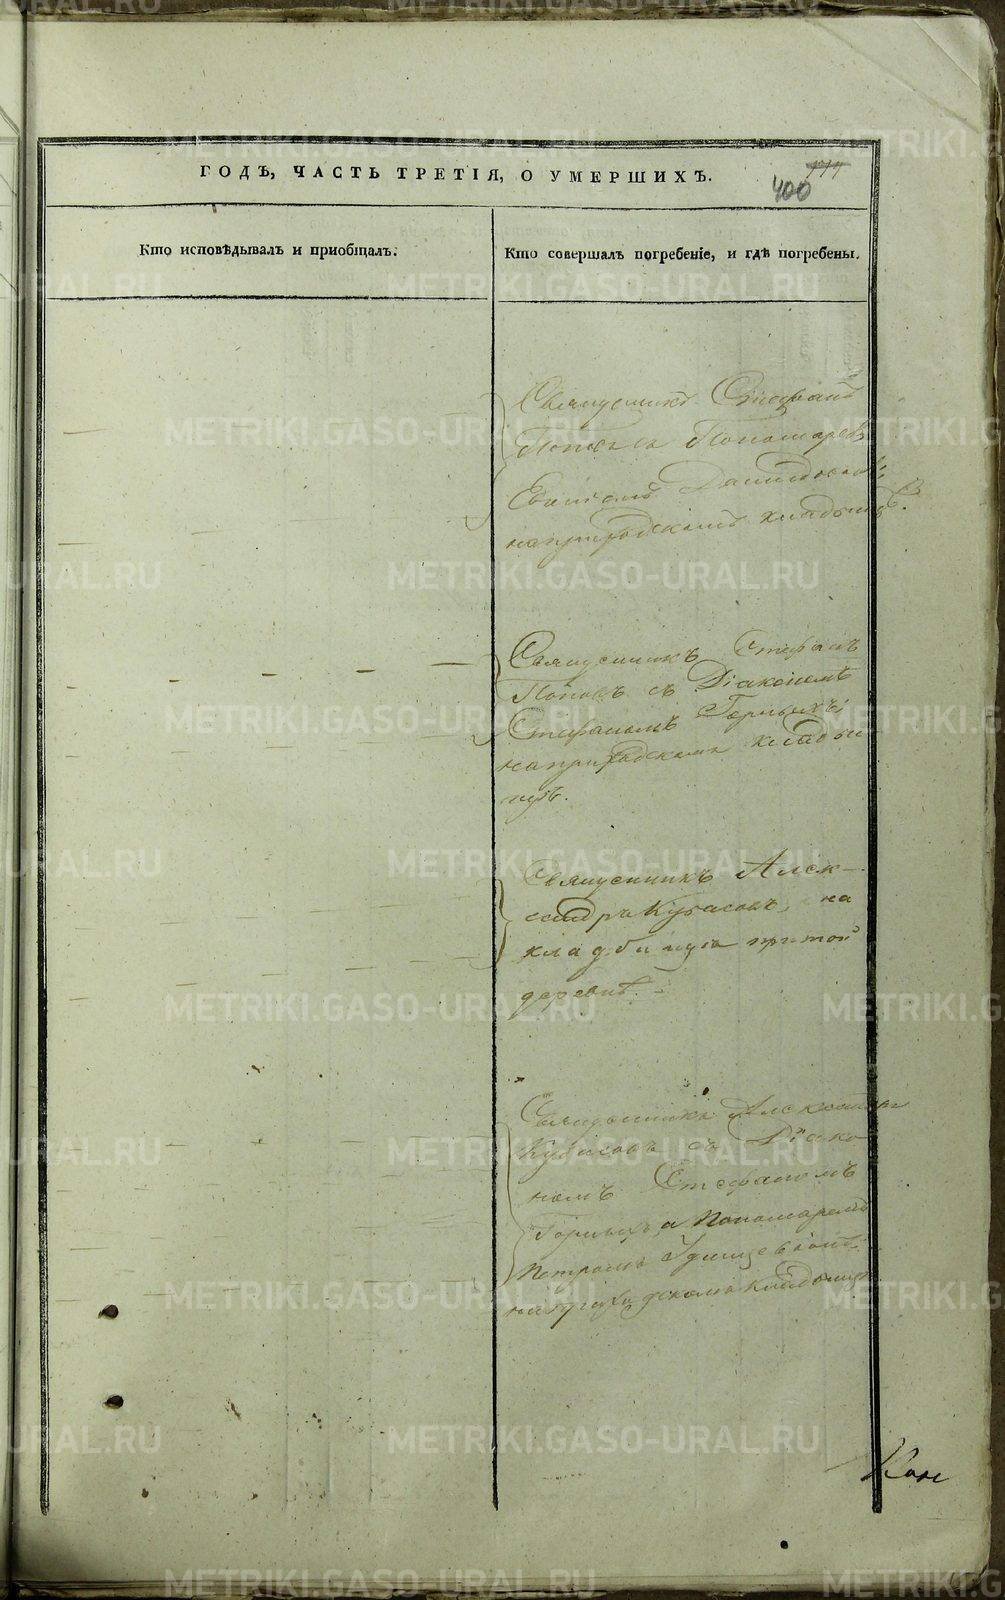 ГОДЪ, ЧАСТЬ ТРЕТІЯ, О УМЕРШИХЪ.
400
Кто исповѣдывалъ и пріобщалъ.
Кто совершалъ погребеніе, и гдѣ погребены.
Священникъ Стефанъ
Поповъ съ Пономаремъ
на приходскомъ кладбищѣ.
Священникъ Стефанъ
Поповъ съ Діакономъ
Стефаномъ Горныхъ,
на приходскомъ кладби
щѣ.
Священникъ Алек-
сандръ Кубасовъ, на
кладбищѣ при той
деревнѣ.
Священникъ Александръ
Кубасовъ съ Діако
номъ Стефаномъ
Горныхъ и Пономаремъ
Петромъ
на приходскомъ кладбищѣ
METRIKI.GASO-URAL.RU